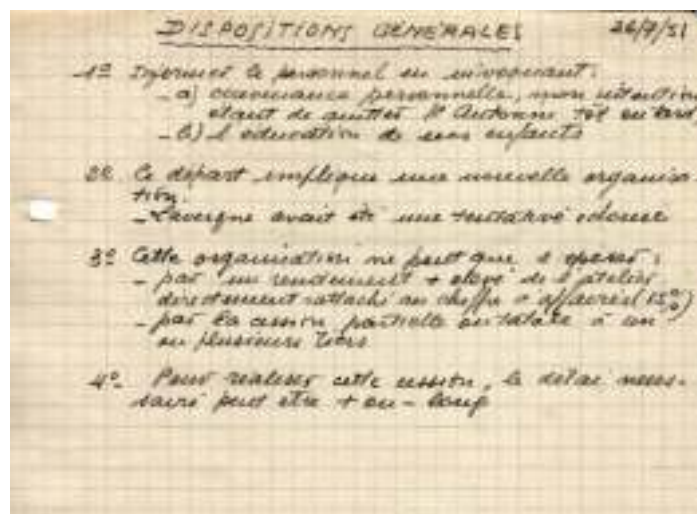 DISPOSITIONS GÉNÉRALES 26/7/51
1º Informer le personnel en invoquant :
- a) convenance personnelle, mon intention
étant de quitter St Antonin tôt ou tard
- b) l'éducation de mes enfants
2º Ce départ implique une nouvelle organisa-
tion.
- Lavergne avait été une tentative
3º Cette organisation ne peut que s'opérer :
- par un rendement + élevé de l'atelier
directement rattaché au chiffre d'affaires (15%)
- par la cession partielle ou totale à un
ou plusieurs tiers
4º- Pour réaliser cette cession, le délai néces-
saire peut être + ou - long